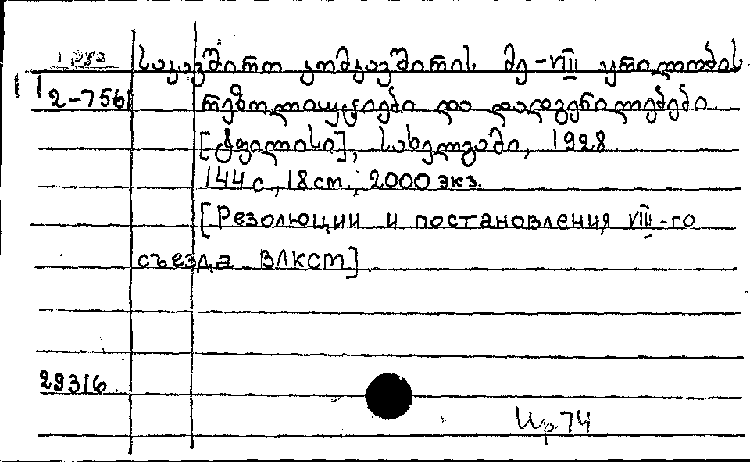 საკავშირო კომკავშირის მე-VIII ყრილობის
2-7561 რეზოლიუციები და დადგენილებები
[ტფილისი], სახელგამი, 1928
144 с., 18 ст., 2000 экз.
[Резолюции и постановления VIII-го
съезда ВЛКСТ]
29316
Ир 74